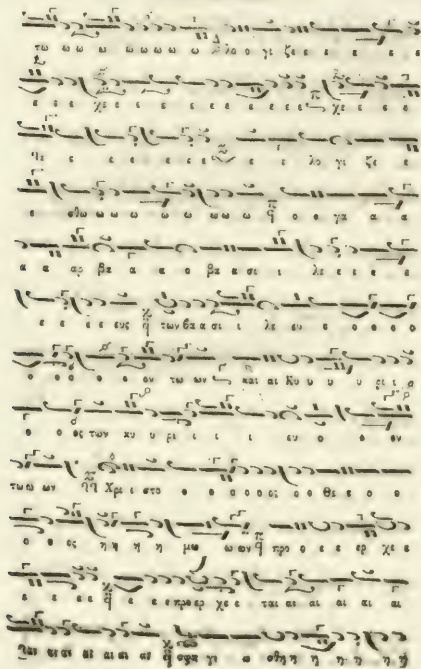 τω ω ω ω ω ω ω ω ω λο ο γι ζε ε ε ε ε ε ε
ε ε ε χε ε ε ε ε ε ε ε ε ε ε ε χε ε ε ε
ε ε ε ε ε ε ε ε ε λο γι ζε ε
ε σθω ω ω ω ω ω ω ω ω ο ο γα α α
α α αρ βα α α ο βα α σι ι λε ε ε ε ε
ε ε ε ε ευς των βα α σι ι λε ευ ο ο ο ο ο
ο ο ο ο ο ον τω ων και αι Κυ υ υ υ ρι ι ο
ο ο ος των κυ υ ρι ι ι ι ευ ο ο ον
τω ω ων Χρι ι στο ο ο ο ο ο ος ο ο Θε ε ο ο
ο ο ος η η η η μω ω ων προ ο ε ε ερ χε ε
ε ε ε ε ε ε προ ερ χε ε ται αι αι αι αι αι αι
αι αι αι αι αι αι αι σφα γι ι ω σθη η η η η η η